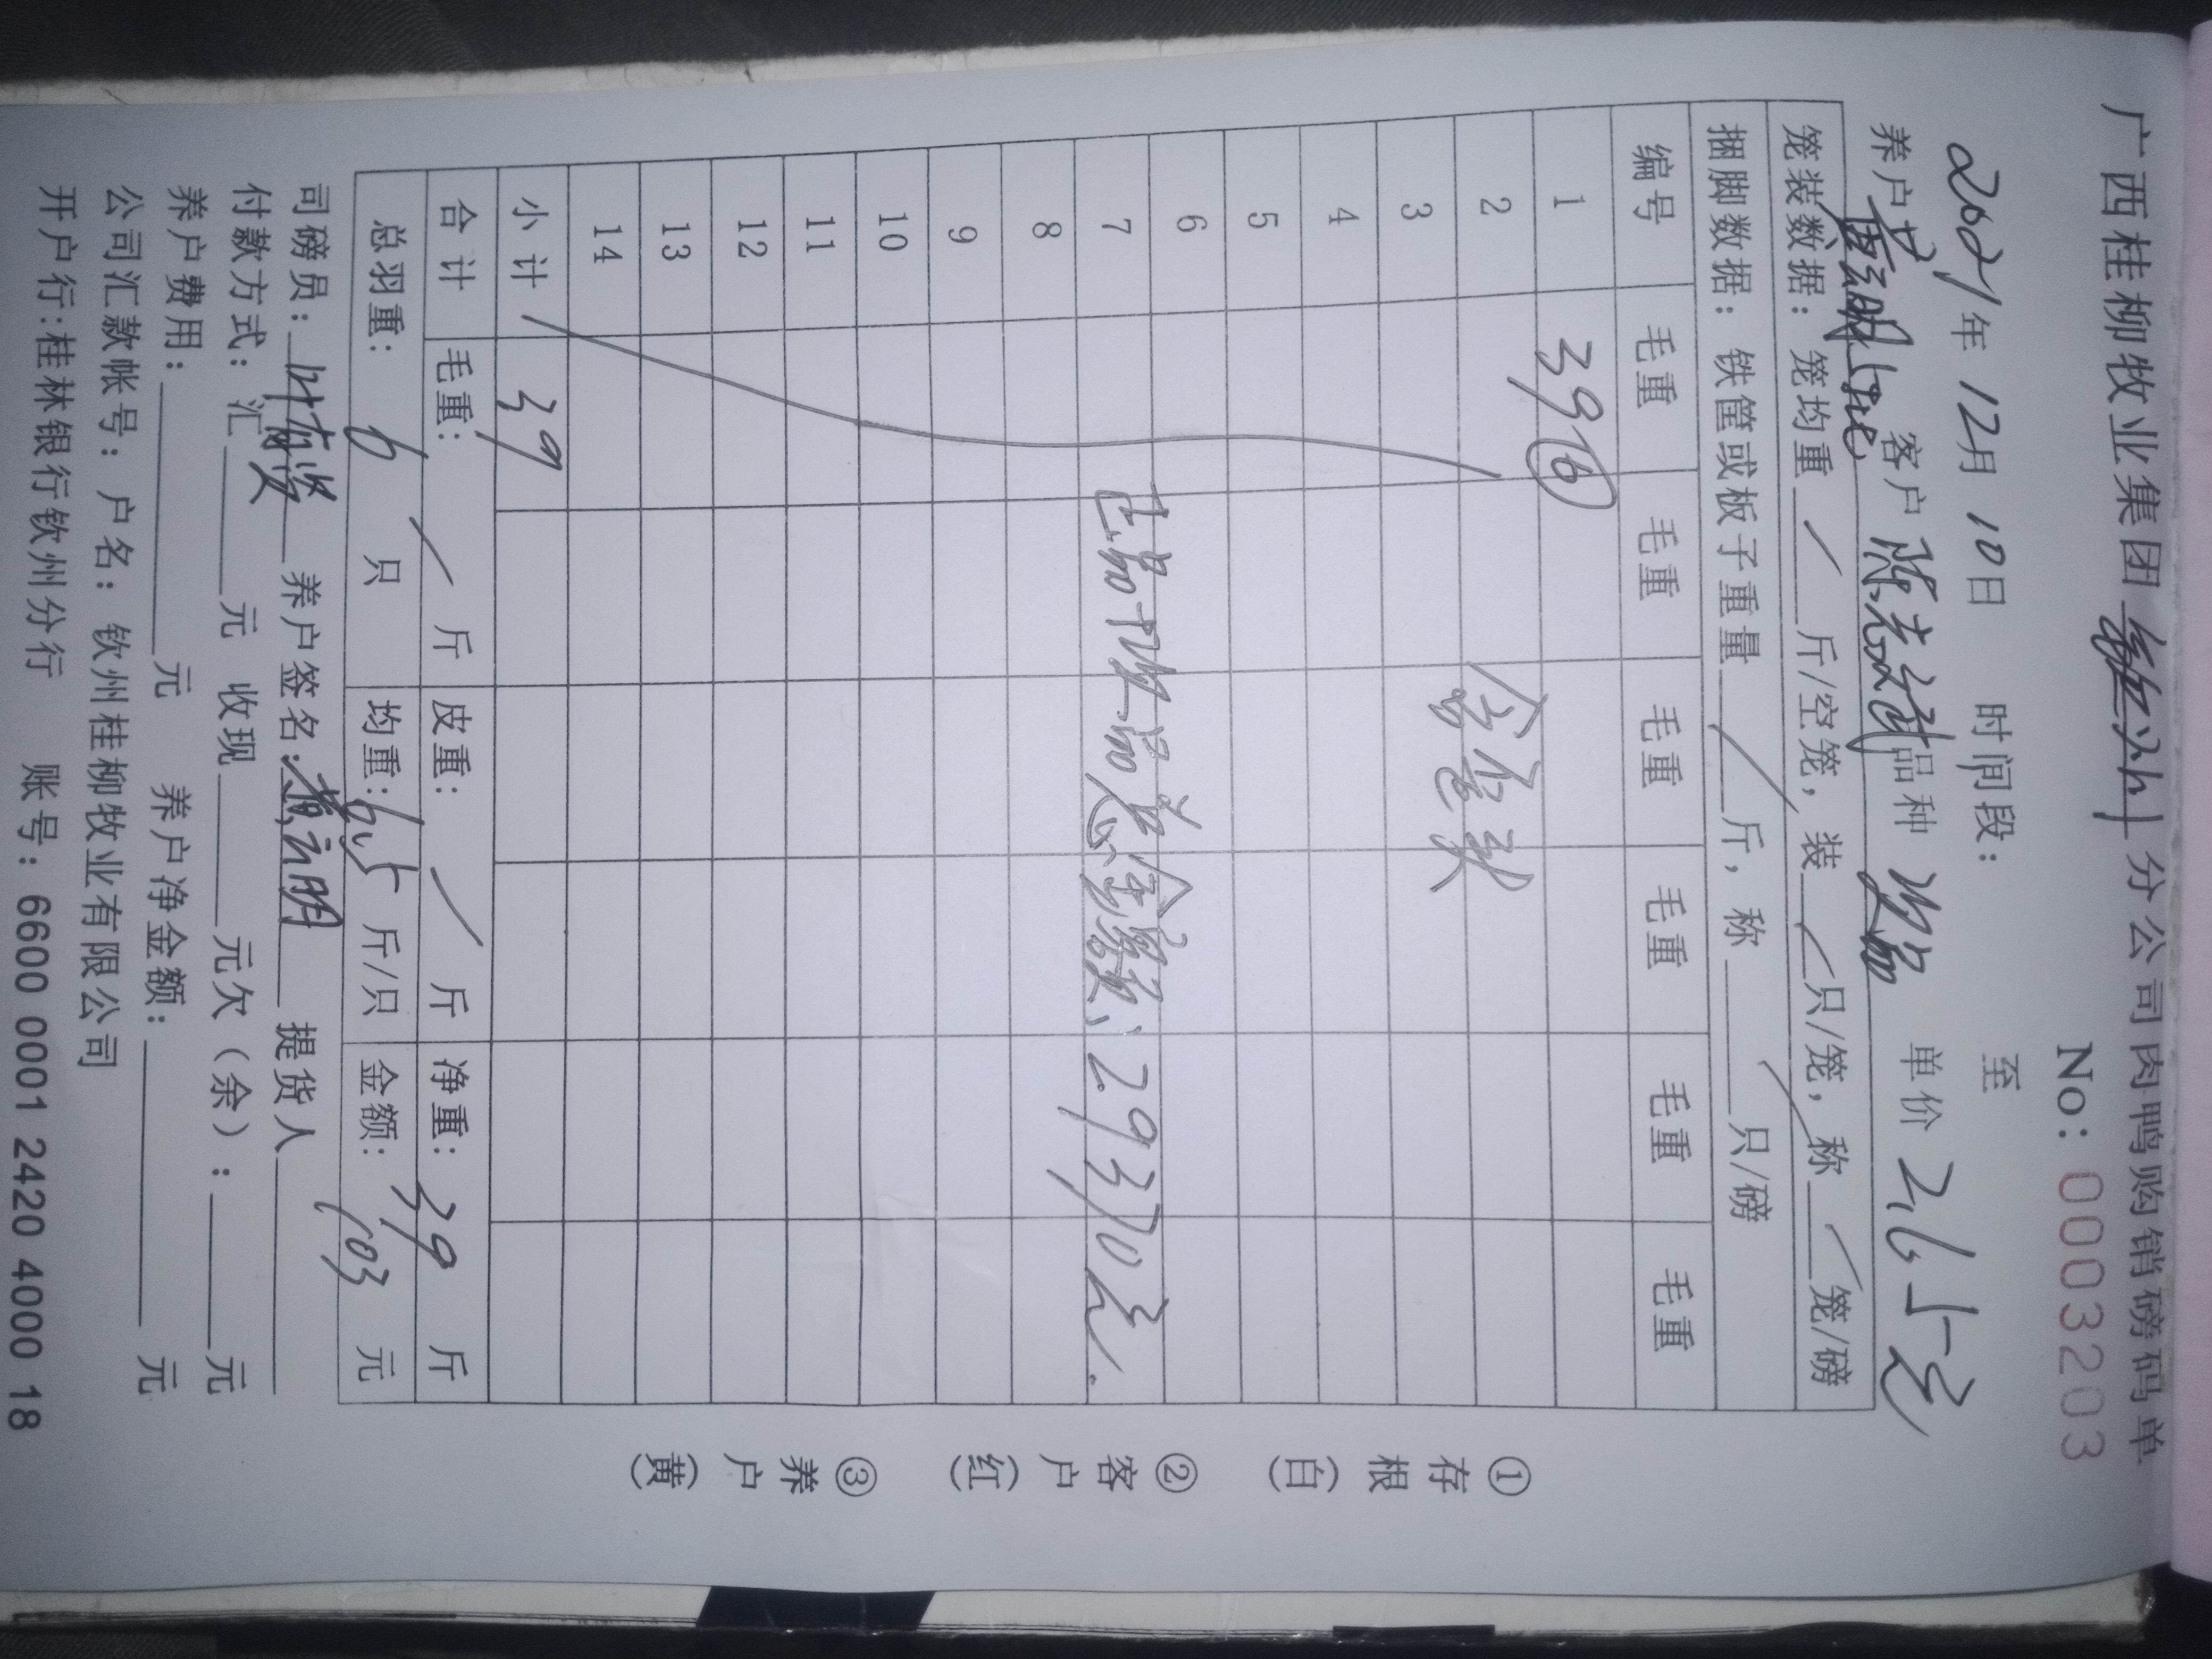 广西桂柳牧业集团 钦州 分公司肉鸭购销磅码单
No: 0003203
2021年 12月 10日 时间段: 至
养户 客户 陈 品种 次品 单价 2.65元
笼装数据: 笼均重 / 斤/空笼, 装 / 只/笼, 称 / 笼/磅
捆脚数据: 铁筐或板子重量 / 斤, 称 / 只/磅
编号 毛重 毛重 毛重 毛重 毛重 毛重
1 39 ⑥
2 含运费
3
4
5
6
7 正品+次品总金额: 29370元.
8
9
10
11
12
13
14
小计 39
合计 毛重: / 斤 皮重: / 斤 净重: 39 斤
总羽重: 6 只 均重: 6.5 斤/只 金额: 103 元
司磅员: 叶 养户签名: 提货人
付款方式: 汇 元 收现 元欠(余): 元
养户费用: 元 养户净金额: 元
公司汇款帐号: 户名: 钦州桂柳牧业有限公司
开户行:桂林银行钦州分行 账号: 6600 0001 2420 4000 18
①存根(白) ②客户(红) ③养户(黄)